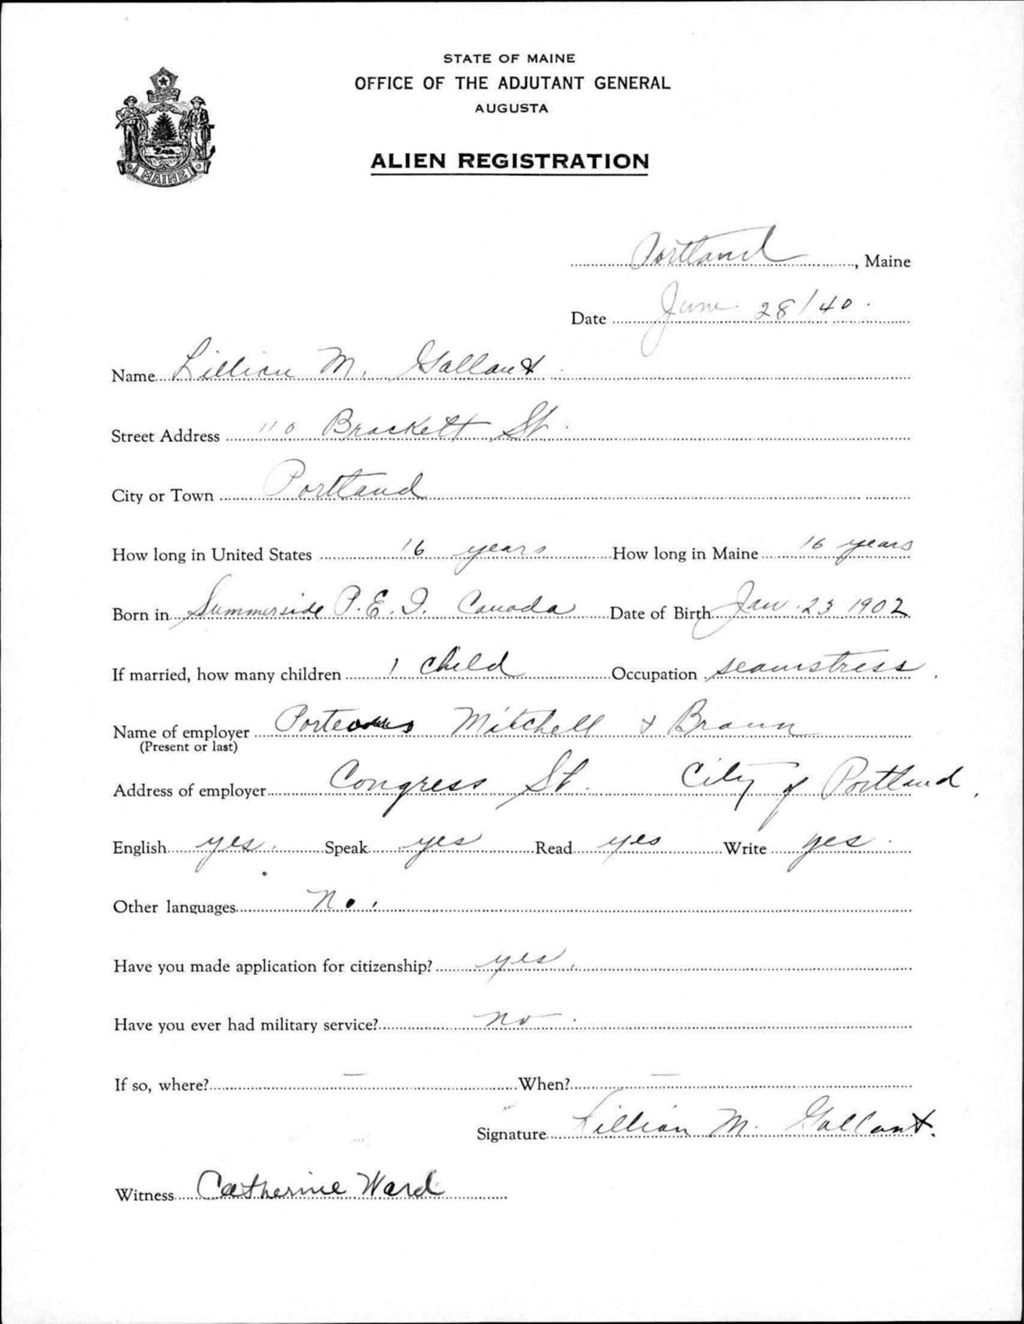 STATE OF MAINE
OFFICE OF THE ADJUTANT GENERAL
AUGUSTA
ALIEN REGISTRATION
MAINE
Portland, Maine
Date June 28/40.
Name Lillian M. Gallant
Street Address 110 Brackett St.
City or Town Portland
How long in United States 16 years How long in Maine 16 years
Born in Summerside P.E.I. Canada Date of Birth Jan 23 1902
If married, how many children 1 child Occupation seamstress.
Name of employer Porteous Mitchell & Braun
(Present or last)
Address of employer Congress St. City of Portland.
English yes. Speak yes Read yes Write yes.
Other languages No.
Have you made application for citizenship? yes.
Have you ever had military service? no.
If so, where? — When? —
Signature Lillian M. Gallant.
Witness Catherine Ward